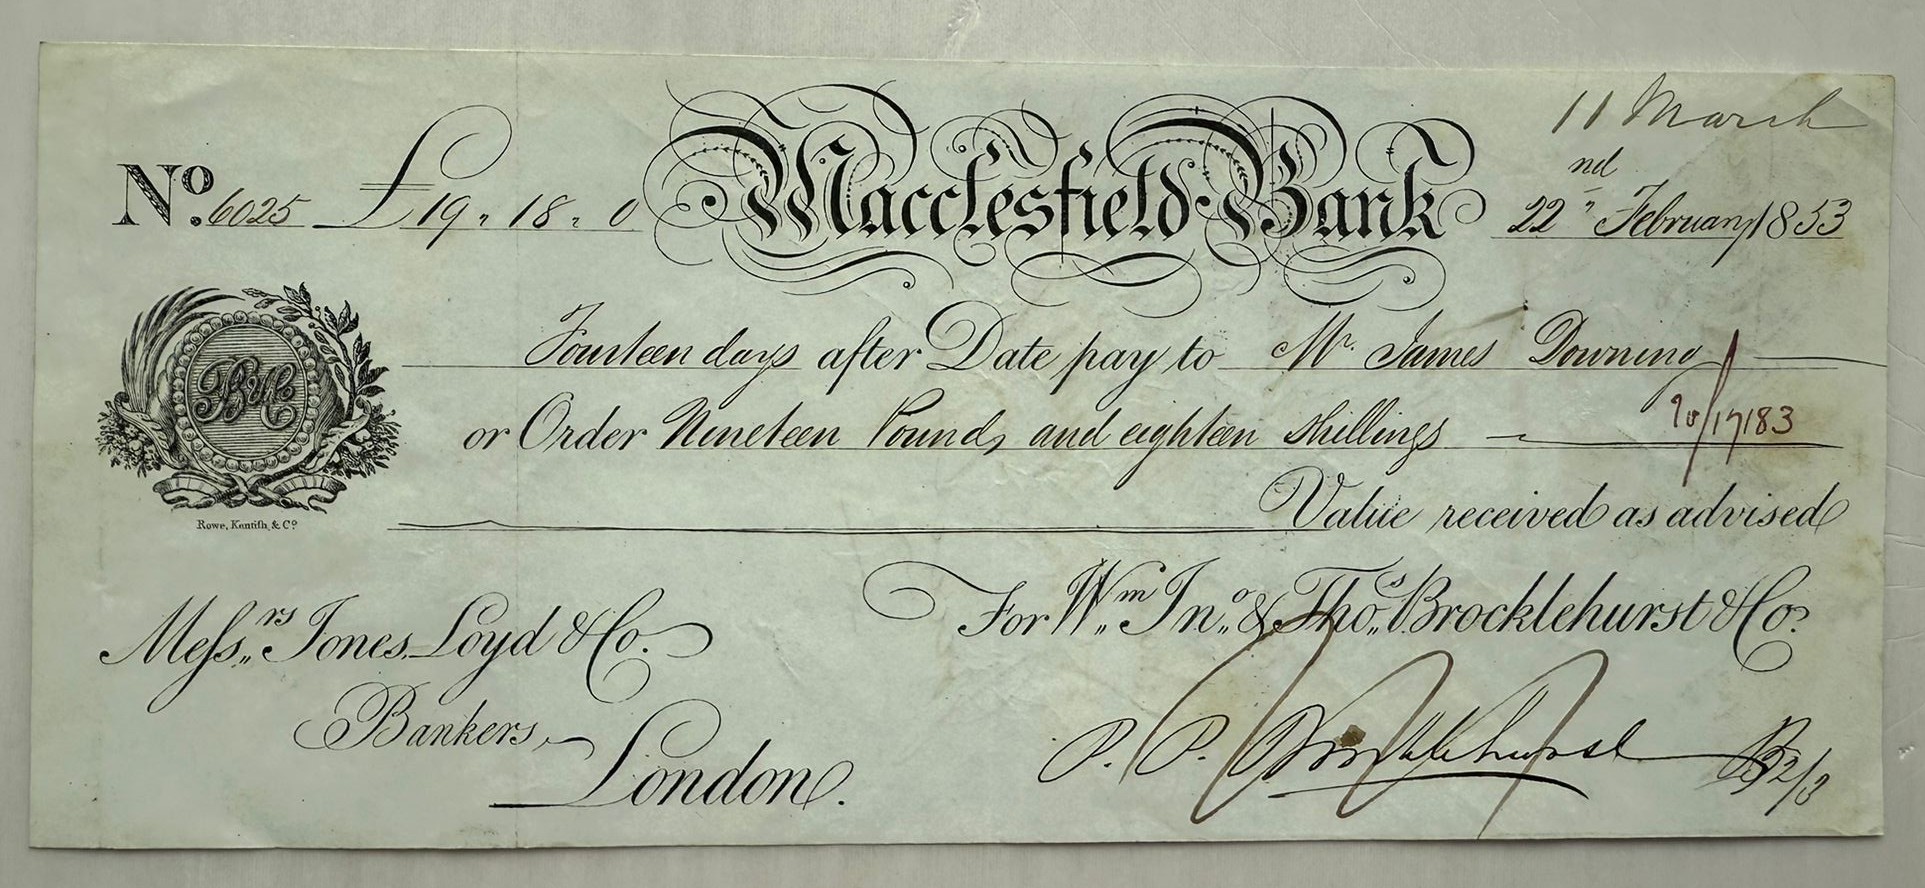 11 March
No. 6025 £19 " 18 " 0 Macclesfield Bank 22nd February 1853
Fourteen days after Date pay to Mr. James Downing
or Order Nineteen Pounds and eighteen shillings
Value received as advised
Rowe, Kentish, & Co.
For Wm. Jno. & Thos. Brocklehurst & Co.
Messrs. Jones, Loyd & Co.
Bankers,
London.
P. P. Brocklehurst